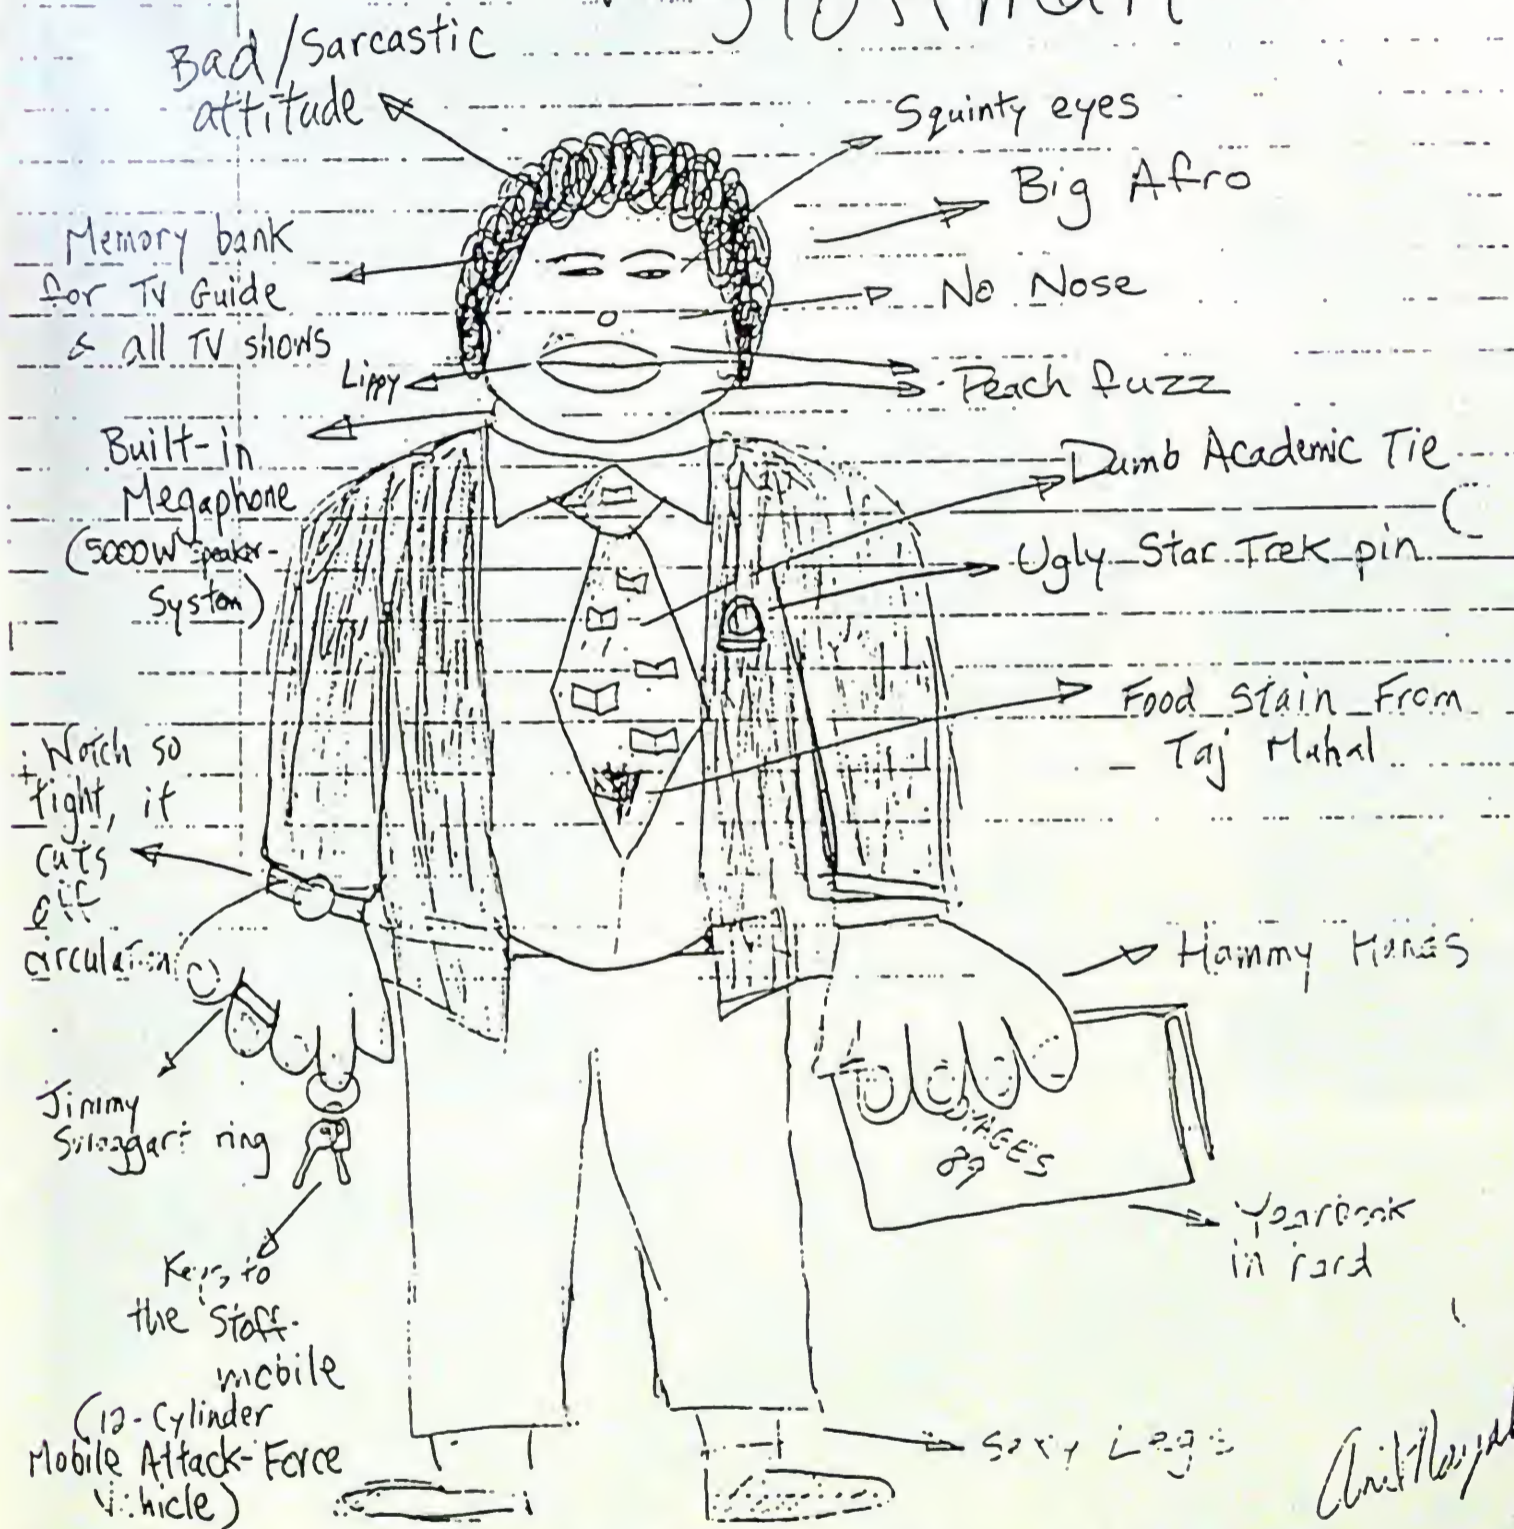 Bad/Sarcastic
attitude
Squinty eyes
Big Afro
Memory bank
for TV Guide
& all TV shows
No Nose
Lippy
Peach fuzz
Built-in
Megaphone
(5000W speaker-
System)
Dumb Academic Tie
Ugly Star Trek pin
Food Stain From
Taj Mahal
Watch so
tight, it
cuts
off
circulation
Hammy Hands
Jimmy
Swaggart ring
VOYAGES
89
Yearbook
in hand
Keys to
the Staff-
mobile
(12-Cylinder
Mobile Attack-Force
Vehicle)
Sexy Legs